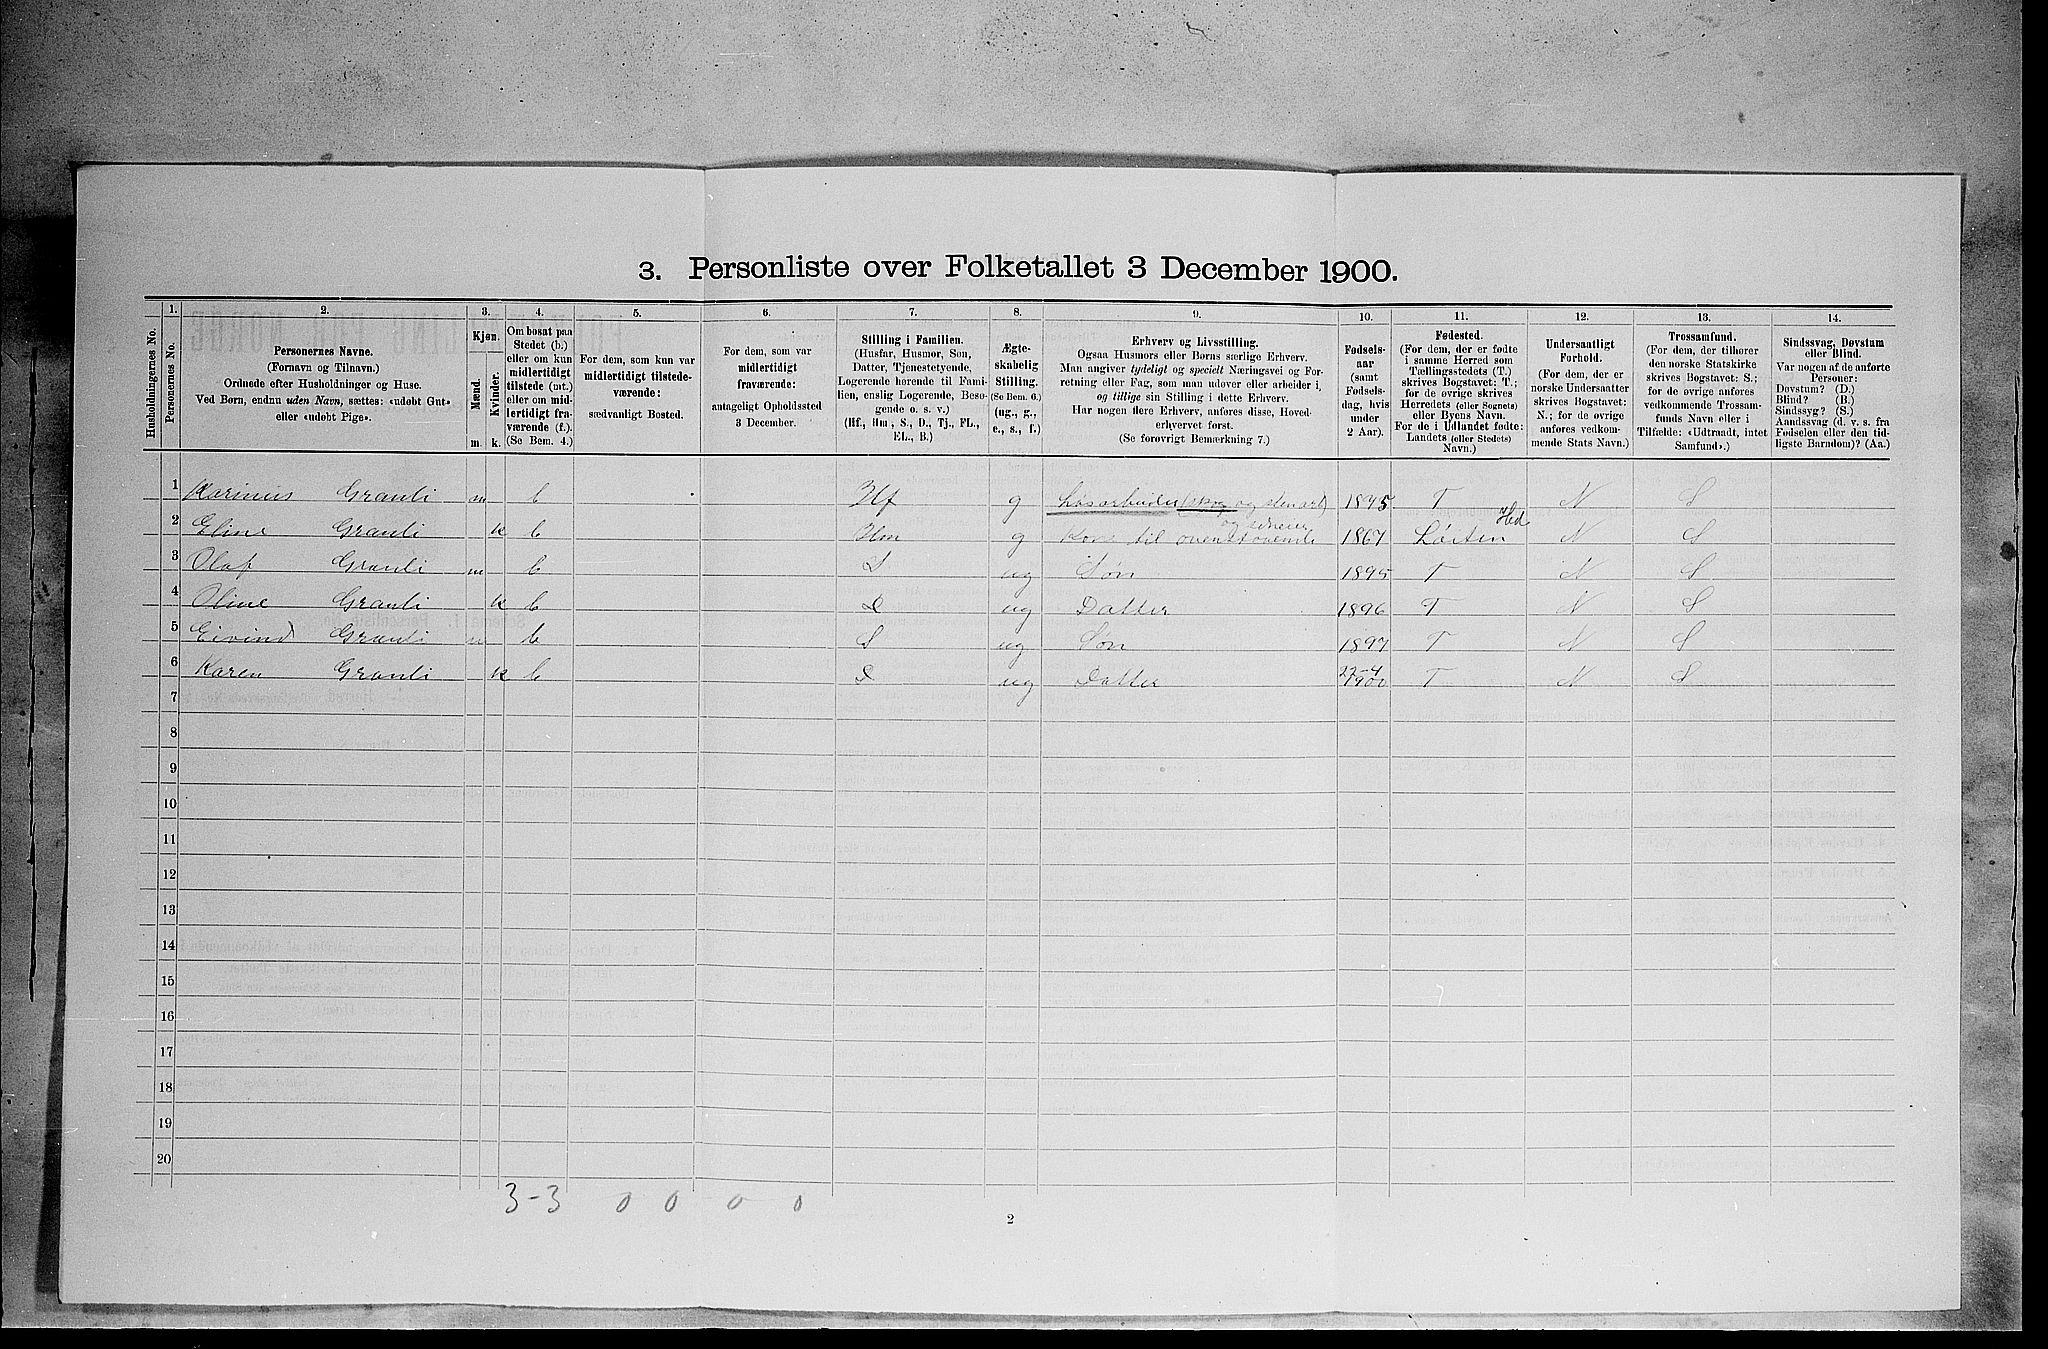 3. Personliste over Folketallet 3 December 1900.
Husholdningernes No.
1.
Personernes No.
2.
Personernes Navne.
(Fornavn og Tilnavn.)
Ordnede efter Husholdninger og Huse.
Ved Børn, endnu uden Navn, sættes: «udøbt Gut»
eller «udøbt Pige».
3.
Kjøn.
Mænd.
Kvinder.
m. k.
4.
Om bosat paa
Stedet (b.)
eller om kun
midlertidigt
tilstede (mt.)
eller om mid-
lertidigt fra-
værende (f.).
(Se Bem. 4.)
5.
For dem, som kun var
midlertidigt tilstede-
værende:
sædvanligt Bosted.
6.
For dem, som var
midlertidigt
fraværende:
antageligt Opholdssted
3 December.
7.
Stilling i Familien.
(Husfar, Husmor, Søn,
Datter, Tjenestetyende,
Logerende hørende til Fami-
lien, enslig Logerende, Besø-
gende o. s. v.)
(Hf., Hm., S., D., Tj., FL.,
EL., B.)
8.
Ægte-
skabelig
Stilling.
(Se Bem. 6.)
(ug., g.,
e., s., f.)
9.
Erhverv og Livsstilling.
Ogsaa Husmors eller Børns særlige Erhverv.
Man angiver tydeligt og specielt Næringsvei og For-
retning eller Fag, som man udøver eller arbeider i,
og tillige sin Stilling i dette Erhverv.
Har nogen flere Erhverv, anføres disse, Hoved-
erhvervet først.
(Se forøvrigt Bemærkning 7.)
10.
Fødsels-
aar
(samt
Fødsels-
dag, hvis
under
2 Aar).
11.
Fødested.
(For dem, der er fødte
i samme Herred som
Tællingsstedets (T.)
skrives Bogstavet: T.;
for de øvrige skrives
Herredets (eller Sognets)
eller Byens Navn.
For de i Udlandet fødte:
Landets (eller Stedets)
Navn.)
12.
Undersaatligt
Forhold.
(For dem, der er
norske Undersaatter
skrives Bogstavet:
N.; for de øvrige
anføres vedkom-
mende Stats Navn.)
13.
Trossamfund.
(For dem, der tilhører
den norske Statskirke
skrives Bogstavet: S.;
for de øvrige anføres
vedkommende Trossam-
funds Navn eller i
Tilfælde: «Udtraadt, intet
Samfund».)
14.
Sindssvag, Døvstum
eller Blind.
Var nogen af de anførte
Personer:
Døvstum? (D.)
Blind? (B.)
Sindssyg? (S.)
Aandssvag (d. v. s. fra
Fødselen eller den tid-
ligste Barndom)? (Aa.)
1 Karinius Granli m b Hf g Løsarbeider (skog og stenarb T N S
2 Eline Granli k b Hm g Kone til ovenstovende 1867 Løiten Hed N S
3 Olaf Granli m b S ug Søn 1895 T N S
4 Oline Granli k b D ug Datter 1896 T N S
5 Eivind Granli m b S ug Søn 1897 T N S
6 Karen Granli k b D ug Datter 22-4 1900 T N S
7
8
9
10
11
12
13
14
15
16
17
18
19
20
3-3 0 0 0 0
2